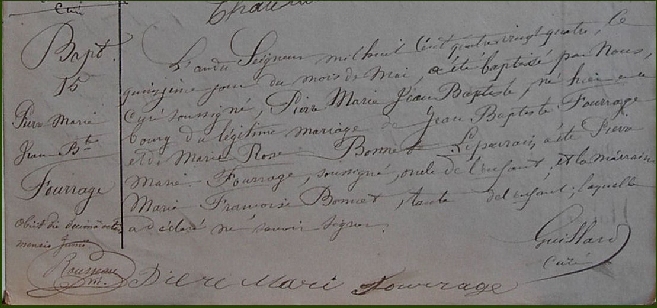 Curé
Bapt.
15
Pierre Marie
Jean Bte
Fourrage
Obiit die decima octava
mensis
L'an du Seigneur mil huit cent quatre vingt quatre, le
quinzième jour du mois de Mai, a été baptisé par Nous,
Curé soussigné, Pierre Marie Jean Baptiste, né hier en ce
bourg du légitime mariage de Jean Baptiste Fourrage
et de Marie Rose Bonnet. Le parrain, a été Pierre
Marie Fourrage, soussigné, oncle de l'enfant; et la marraine
Marie Françoise Bonnet, tante de l'enfant, laquelle
a déclaré ne savoir signer.
Guillard
Curé
Pierre Marie Fourrage